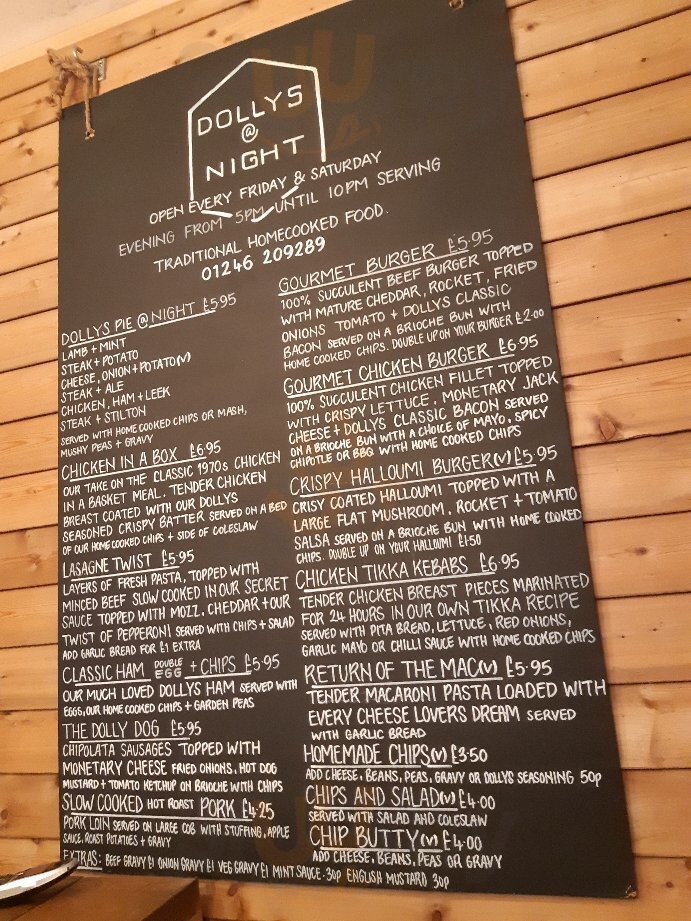 DOLLYS
@
NIGHT
OPEN EVERY FRIDAY & SATURDAY
EVENING FROM 5PM UNTIL 10PM SERVING
TRADITIONAL HOMECOOKED FOOD.
01246 209289
DOLLYS PIE @ NIGHT £5.95
LAMB + MINT
STEAK + POTATO
CHEESE, ONION + POTATO (V)
STEAK + ALE
CHICKEN, HAM + LEEK
STEAK + STILTON
SERVED WITH HOME COOKED CHIPS OR MASH,
MUSHY PEAS + GRAVY
CHICKEN IN A BOX £6.95
OUR TAKE ON THE CLASSIC 1970s CHICKEN
IN A BASKET MEAL. TENDER CHICKEN
BREAST COATED WITH OUR DOLLYS
SEASONED CRISPY BATTER SERVED ON A BED
OF OUR HOME COOKED CHIPS + SIDE OF COLESLAW
LASAGNE TWIST £5.95
LAYERS OF FRESH PASTA, TOPPED WITH
MINCED BEEF SLOW COOKED IN OUR SECRET
SAUCE TOPPED WITH MOZZ, CHEDDAR + OUR
TWIST OF PEPPERONI SERVED WITH CHIPS + SALAD
ADD GARLIC BREAD FOR £1 EXTRA
CLASSIC HAM DOUBLE EGG + CHIPS £5.95
OUR MUCH LOVED DOLLYS HAM SERVED WITH
EGGS, OUR HOME COOKED CHIPS + GARDEN PEAS
THE DOLLY DOG £5.95
CHIPOLATA SAUSAGES TOPPED WITH
MONETARY CHEESE FRIED ONIONS, HOT DOG
MUSTARD + TOMATO KETCHUP ON BRIOCHE WITH CHIPS
SLOW COOKED HOT ROAST PORK £4.25
PORK LOIN SERVED ON LARGE COB WITH STUFFING, APPLE
SAUCE, ROAST POTATOES + GRAVY
GOURMET BURGER £5.95
100% SUCCULENT BEEF BURGER TOPPED
WITH MATURE CHEDDAR, ROCKET, FRIED
ONIONS TOMATO + DOLLYS CLASSIC
BACON SERVED ON A BRIOCHE BUN WITH
HOME COOKED CHIPS. DOUBLE UP ON YOUR BURGER £2.00
GOURMET CHICKEN BURGER £6.95
100% SUCCULENT CHICKEN FILLET TOPPED
WITH CRISPY LETTUCE, MONETARY JACK
CHEESE + DOLLYS CLASSIC BACON SERVED
ON A BRIOCHE BUN WITH A CHOICE OF MAYO, SPICY
CHIPOTLE OR BBQ WITH HOME COOKED CHIPS
CRISPY HALLOUMI BURGER (V) £5.95
CRISY COATED HALLOUMI TOPPED WITH A
LARGE FLAT MUSHROOM, ROCKET + TOMATO
SALSA SERVED ON A BRIOCHE BUN WITH HOME COOKED
CHIPS. DOUBLE UP ON YOUR HALLOUMI £1.50
CHICKEN TIKKA KEBABS £6.95
TENDER CHICKEN BREAST PIECES MARINATED
FOR 24 HOURS IN OUR OWN TIKKA RECIPE
SERVED WITH PITA BREAD, LETTUCE, RED ONIONS,
GARLIC MAYO OR CHILLI SAUCE WITH HOME COOKED CHIPS
RETURN OF THE MAC (V) £5.95
TENDER MACARONI PASTA LOADED WITH
EVERY CHEESE LOVERS DREAM SERVED
WITH GARLIC BREAD
HOMEMADE CHIPS (V) £3.50
ADD CHEESE, BEANS, PEAS, GRAVY OR DOLLYS SEASONING 50p
CHIPS AND SALAD (V) £4.00
SERVED WITH SALAD AND COLESLAW
CHIP BUTTY (V) £4.00
ADD CHEESE, BEANS, PEAS OR GRAVY
EXTRAS: BEEF GRAVY £1 ONION GRAVY £1 VEG GRAVY £1 MINT SAUCE .30p ENGLISH MUSTARD 30p